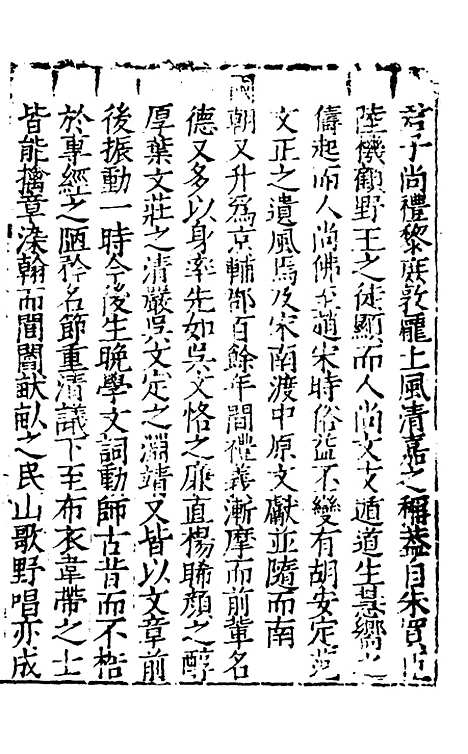 君子尚禮黎庶敦龐士風清嘉之稱蓋自朱買臣
陸機顧野王之徒顯而人尚文支遁道生慧嚮之
儔起而人尚佛至趙宋時俗益丕變有胡安定范
文正之遺風焉及宋南渡中原文獻並隨而南
國朝又升為京輔郡百餘年間禮義漸摩而前輩名
德又多以身率先如吳文恪之廉直楊晞顏之醇
厚葉文莊之清嚴吳文定之淵靖又皆以文章前
後振動一時今後生晚學文詞動師古昔而不梏
於專經之陋矜名節重清議下至布衣韋帶之士
皆能摛章染翰而閭閻畎畝之民山歌野唱亦成